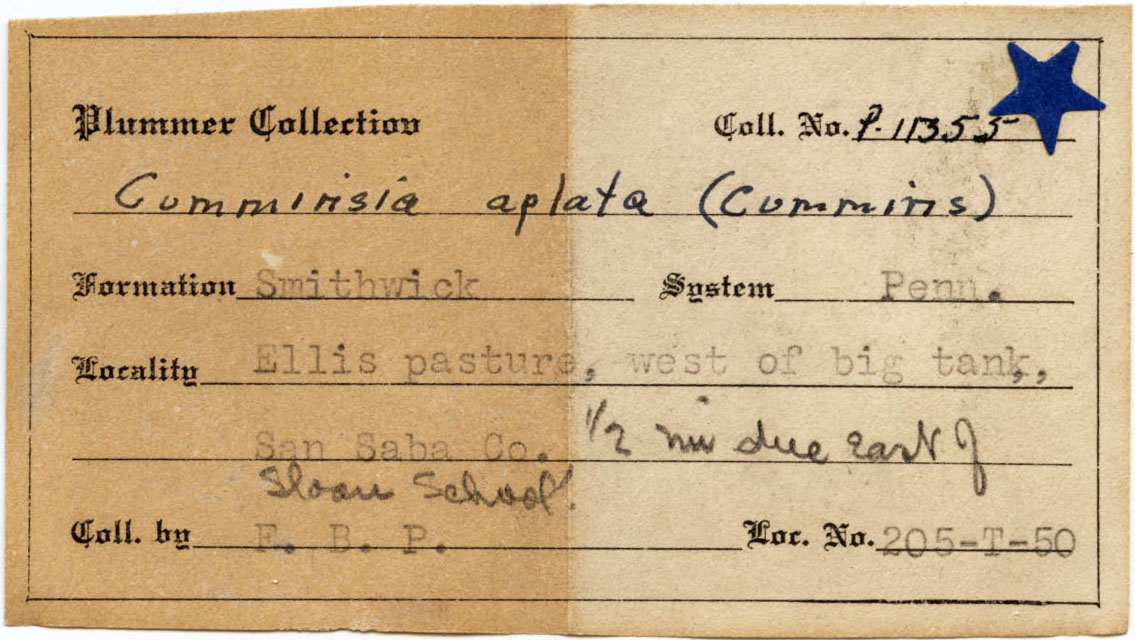 Plummer Collection Coll. No. P-11355
Cumminsia aplata (Cummins)
Formation Smithwick System Penn.
Locality Ellis pasture, west of big tank,
San Saba Co. 1/2 mi due East of
Sloan School.
Coll. by F. B. P. Loc. No. 205-T-50